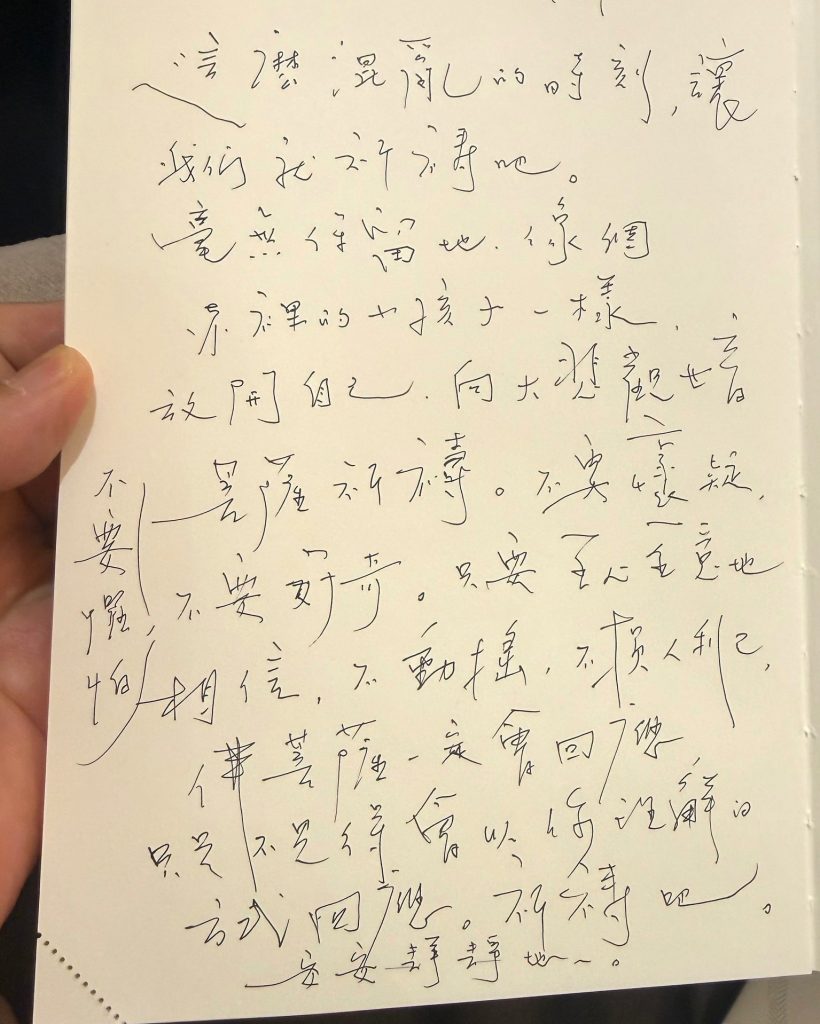 這麼混亂的時刻,讓
我們就祈禱吧。
毫無保留地、像個
赤裸裸的小孩子一樣、
放開自己、向大悲觀世音
菩薩祈禱。不要懷疑,
不要好奇。只要全心全意地
不要懼怕,
相信,不動搖,不損人利己,
佛菩薩一定會回應
只是不見得會以你理解的
方式回應。祈禱吧。
安安靜靜地~。